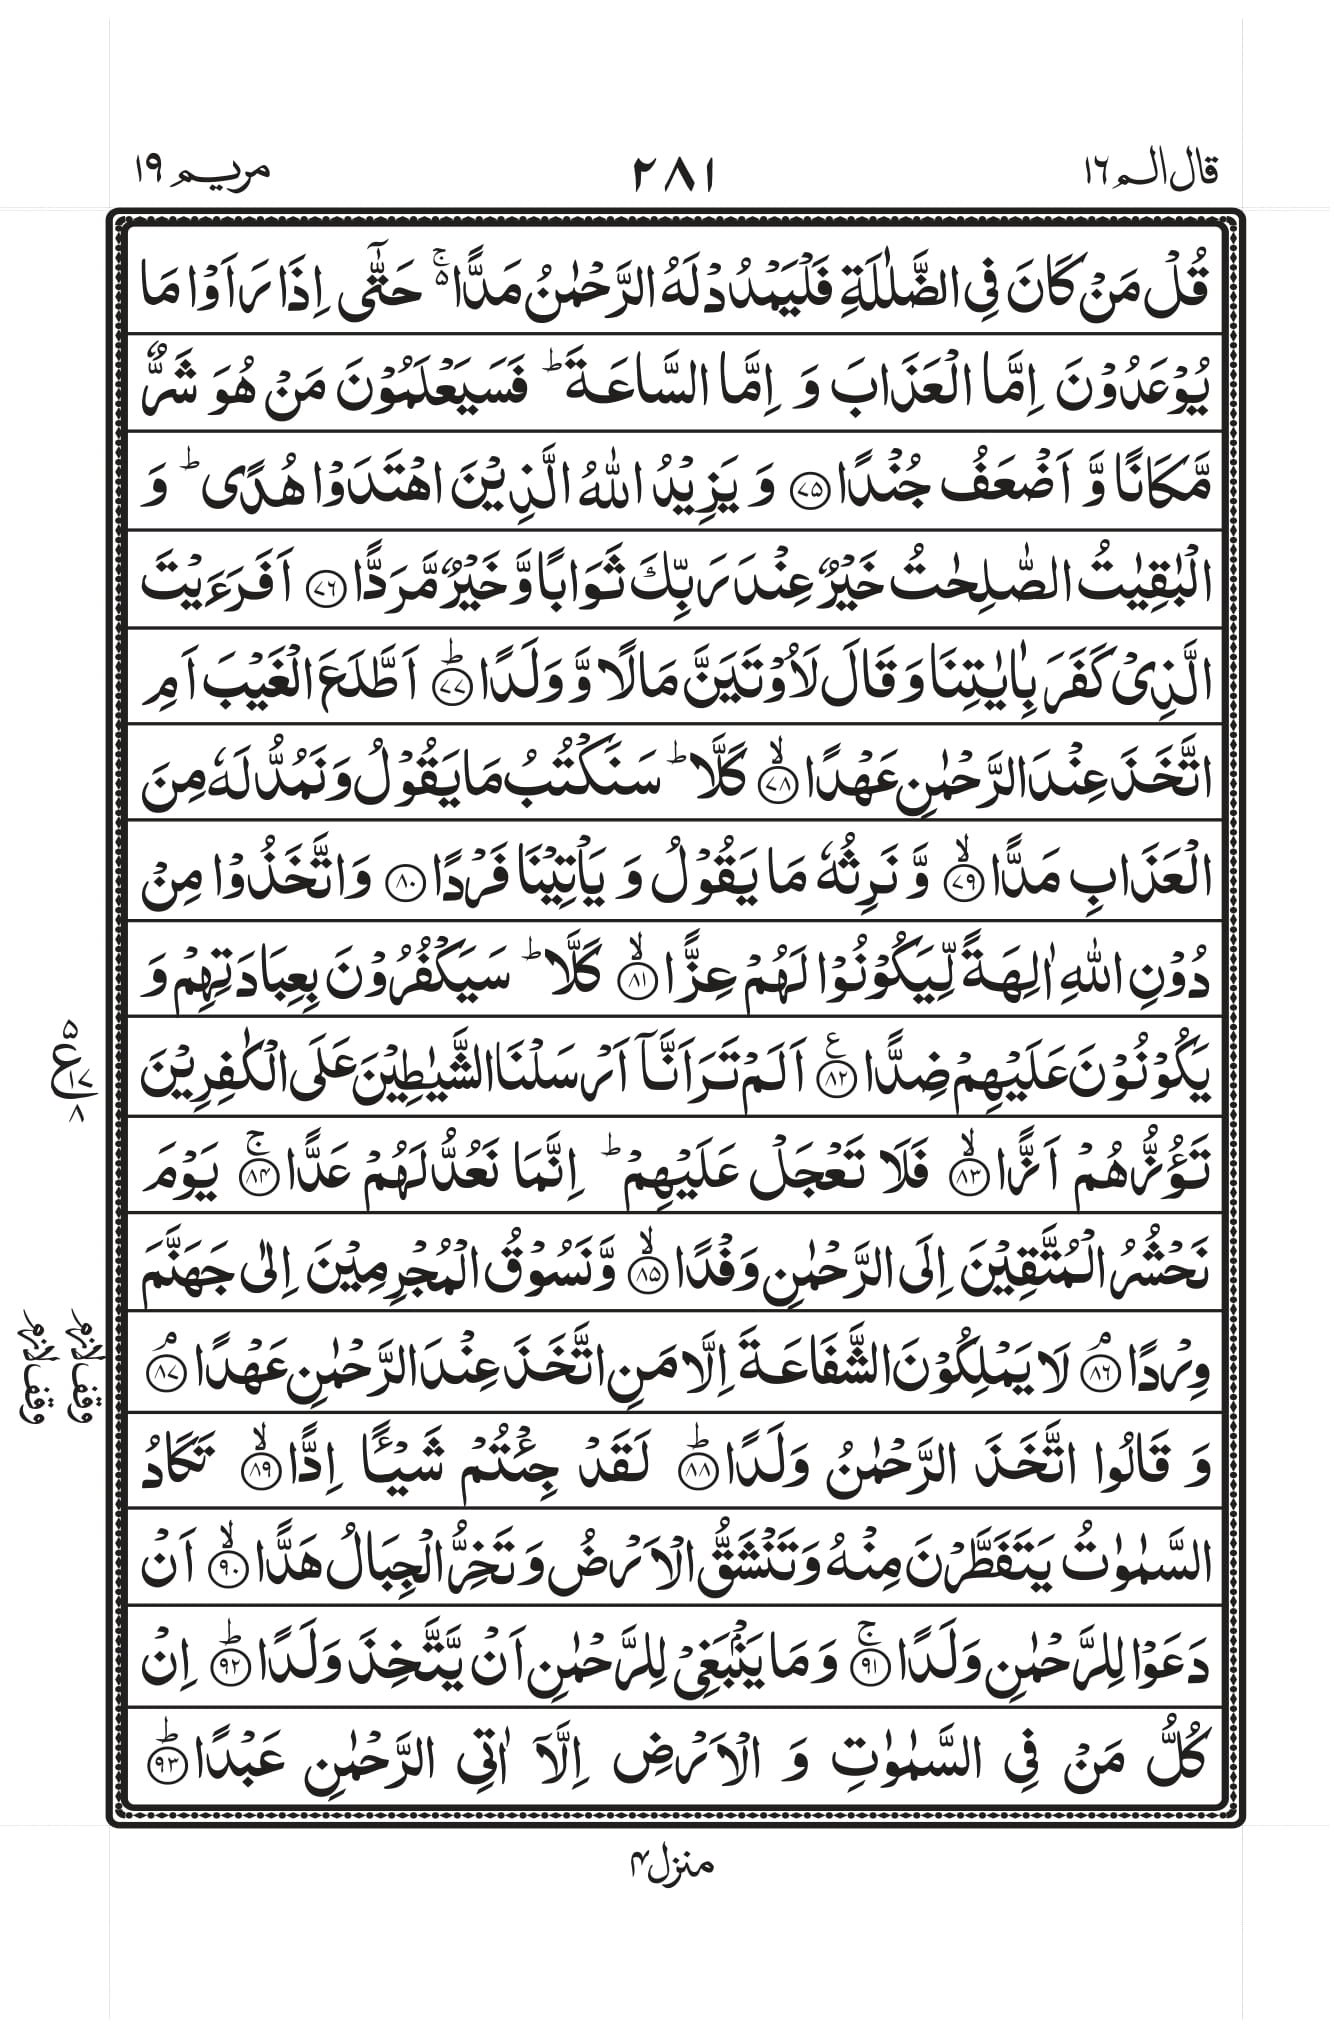 قال الم ١٦
٢٨١
مريم ١٩
قُلْ مَنْ كَانَ فِی الضَّلٰلَةِ فَلْیَمْدُدْ لَهُ الرَّحْمٰنُ مَدًّا ۵ۚ حَتّٰۤی اِذَا رَاَوْا مَا
یُوْعَدُوْنَ اِمَّا الْعَذَابَ وَ اِمَّا السَّاعَةَ ؕ فَسَیَعْلَمُوْنَ مَنْ هُوَ شَرٌّ
مَّكَانًا وَّ اَضْعَفُ جُنْدًا ﴿۷۵﴾ وَ یَزِیْدُ اللّٰهُ الَّذِیْنَ اهْتَدَوْا هُدًی ؕ وَ
الْبٰقِیٰتُ الصّٰلِحٰتُ خَیْرٌ عِنْدَ رَبِّكَ ثَوَابًا وَّ خَیْرٌ مَّرَدًّا ﴿۷۶﴾ اَفَرَءَیْتَ
الَّذِیْ كَفَرَ بِاٰیٰتِنَا وَ قَالَ لَاُوْتَیَنَّ مَالًا وَّ وَلَدًا ﴿ؕ۷۷﴾ اَطَّلَعَ الْغَیْبَ اَمِ
اتَّخَذَ عِنْدَ الرَّحْمٰنِ عَهْدًا ﴿ۙ۷۸﴾ كَلَّا ؕ سَنَكْتُبُ مَا یَقُوْلُ وَ نَمُدُّ لَهٗ مِنَ
الْعَذَابِ مَدًّا ﴿ۙ۷۹﴾ وَّ نَرِثُهٗ مَا یَقُوْلُ وَ یَاْتِیْنَا فَرْدًا ﴿۸۰﴾ وَ اتَّخَذُوْا مِنْ
دُوْنِ اللّٰهِ اٰلِهَةً لِّیَكُوْنُوْا لَهُمْ عِزًّا ﴿ۙ۸۱﴾ كَلَّا ؕ سَیَكْفُرُوْنَ بِعِبَادَتِهِمْ وَ
یَكُوْنُوْنَ عَلَیْهِمْ ضِدًّا ﴿۸۲﴾ ع اَلَمْ تَرَ اَنَّاۤ اَرْسَلْنَا الشَّیٰطِیْنَ عَلَی الْكٰفِرِیْنَ
۵
ع
۱۷
۸
تَؤُزُّهُمْ اَزًّا ﴿ۙ۸۳﴾ فَلَا تَعْجَلْ عَلَیْهِمْ ؕ اِنَّمَا نَعُدُّ لَهُمْ عَدًّا ﴿ۚ۸۴﴾ یَوْمَ
نَحْشُرُ الْمُتَّقِیْنَ اِلَی الرَّحْمٰنِ وَفْدًا ﴿ۙ۸۵﴾ وَّ نَسُوْقُ الْمُجْرِمِیْنَ اِلٰی جَهَنَّمَ
وِرْدًا ﴿ۘ۸۶﴾ لَا یَمْلِكُوْنَ الشَّفَاعَةَ اِلَّا مَنِ اتَّخَذَ عِنْدَ الرَّحْمٰنِ عَهْدًا ﴿ۘ۸۷﴾
وقف لازم
وقف لازم
وَ قَالُوا اتَّخَذَ الرَّحْمٰنُ وَلَدًا ﴿ؕ۸۸﴾ لَقَدْ جِئْتُمْ شَیْـًٔا اِدًّا ﴿ۙ۸۹﴾ تَكَادُ
السَّمٰوٰتُ یَتَفَطَّرْنَ مِنْهُ وَ تَنْشَقُّ الْاَرْضُ وَ تَخِرُّ الْجِبَالُ هَدًّا ﴿ۙ۹۰﴾ اَنْ
دَعَوْا لِلرَّحْمٰنِ وَلَدًا ﴿ۚ۹۱﴾ وَ مَا یَنْۢبَغِیْ لِلرَّحْمٰنِ اَنْ یَّتَّخِذَ وَلَدًا ﴿ؕ۹۲﴾ اِنْ
كُلُّ مَنْ فِی السَّمٰوٰتِ وَ الْاَرْضِ اِلَّاۤ اٰتِی الرَّحْمٰنِ عَبْدًا ﴿ؕ۹۳﴾
منزل ۴